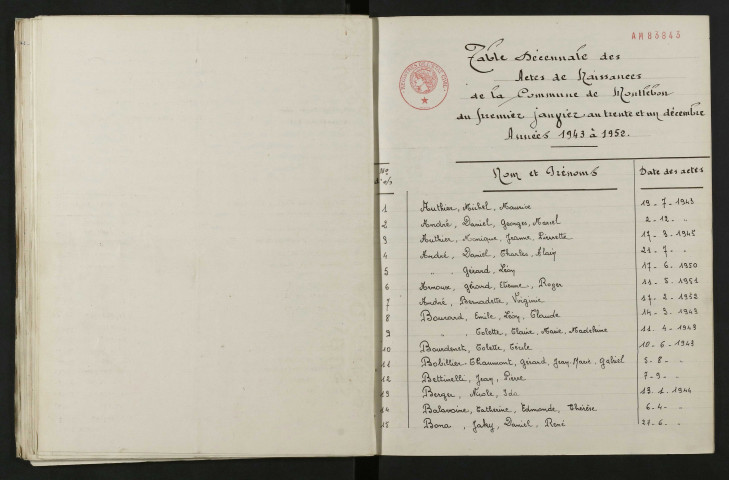 AM B3843
Table Décennale des
Actes de Naissances
de la Commune de Montlebon
du premier janvier au trente et un décembre
Années 1943 à 1952.
Nos d'o/ Nom et Prénoms Date des actes
1 Authier, Michel, Maurice 19 - 7 - 1943
2 André, Daniel, Georges, Marcel 2 - 12 - "
3 Authier, Monique, Jeanne, Pierrette 17 - 3 - 1945
4 André, Daniel, Charles, Alain 21 - 7 - "
5 " " Gérard, Léon 17 - 6 - 1950
6 Arnoux, Gérard, Etienne, Roger 11 - 5 - 1951
7 André, Bernadette, Virginie 17 - 2 - 1952
8 Bourard, Emile, Léon, Claude 14 - 3 - 1943
9 " " Colette, Claire, Marie, Madeleine 11 - 4 - 1943
10 Bourdenet, Colette, Cécile 10 - 6 - 1943
11 Bobillier-Chaumont, Gérard, Jean-Marie, Gabriel 5 - 8 - "
12 Bettinelli, Jean, Pierre 7 - 9 - "
13 Berger, Nicole, Ida 13 - 1 - 1944
14 Balavoine, Catherine, Edmonde, Thérèse 6 - 4 - "
15 Bona, Jaky, Daniel, René 21 - 6 - "